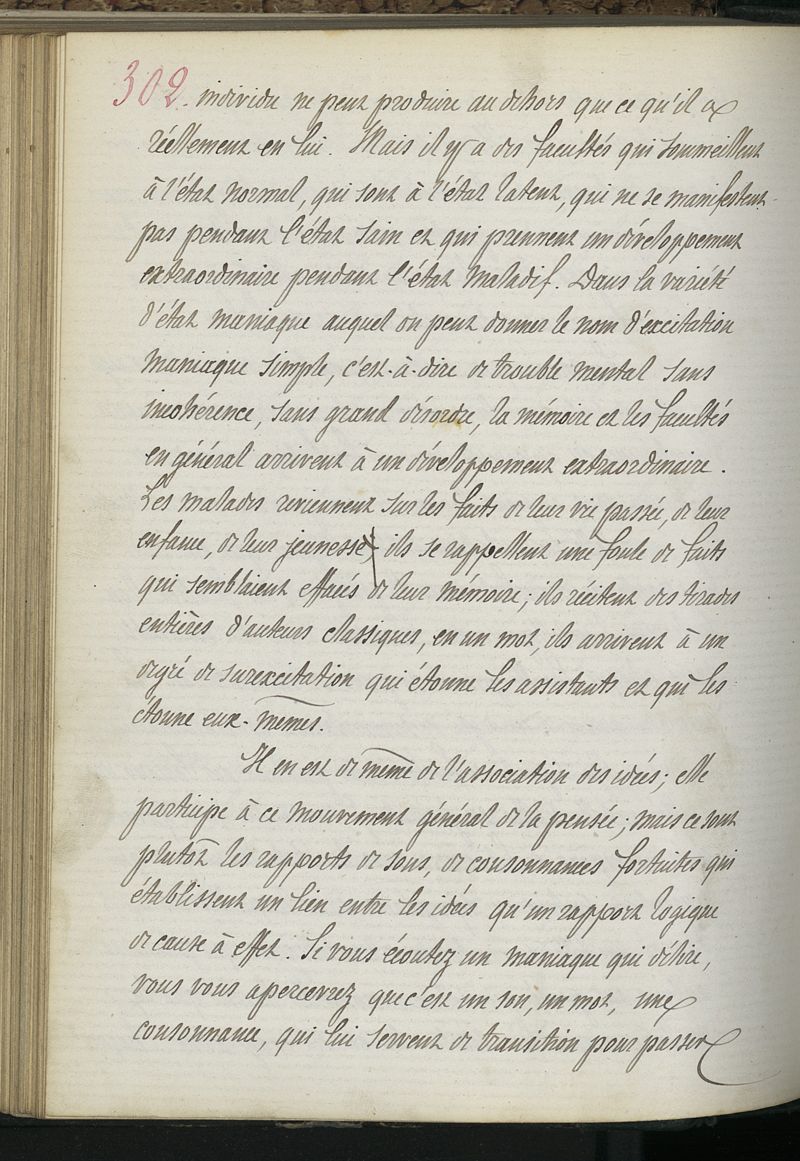 302. individu ne peut produire au dehors que ce qu'il a
réellement en lui. Mais il y a des facultés qui sommeillent
à l'état normal, qui sont à l'état latent, qui ne se manifestent
pas pendant l'état sain et qui prennent un développement
extraordinaire pendant l'état maladif. Dans la variété
d'état maniaque auquel on peut donner le nom d'excitation
maniaque simple, c'est-à-dire de trouble mental sans
incohérence, sans grand désordre, la mémoire et les facultés
en général arrivent à un développement extraordinaire.
Les malades reviennent sur les faits de leur vie passée, de leur
enfance, de leur jeunesse; ils se rappellent une foule de faits
qui semblaient effacés de leur mémoire; ils récitent des tirades
entières d'auteurs classiques, en un mot, ils arrivent à un
degré de surexcitation qui étonne les assistants et qui les
étonne eux-mêmes.
Il en est de même de l'association des idées; elle
participe à ce mouvement général de la pensée; mais ce sont
plutôt les rapports de sons, de consonnances fortuites qui
établissent un lien entre les idées qu'un rapport logique
de cause à effet. Si vous écoutez un maniaque qui délire,
vous vous apercevrez que c'est un son, un mot, une
consonnance, qui lui servent de transition pour passer